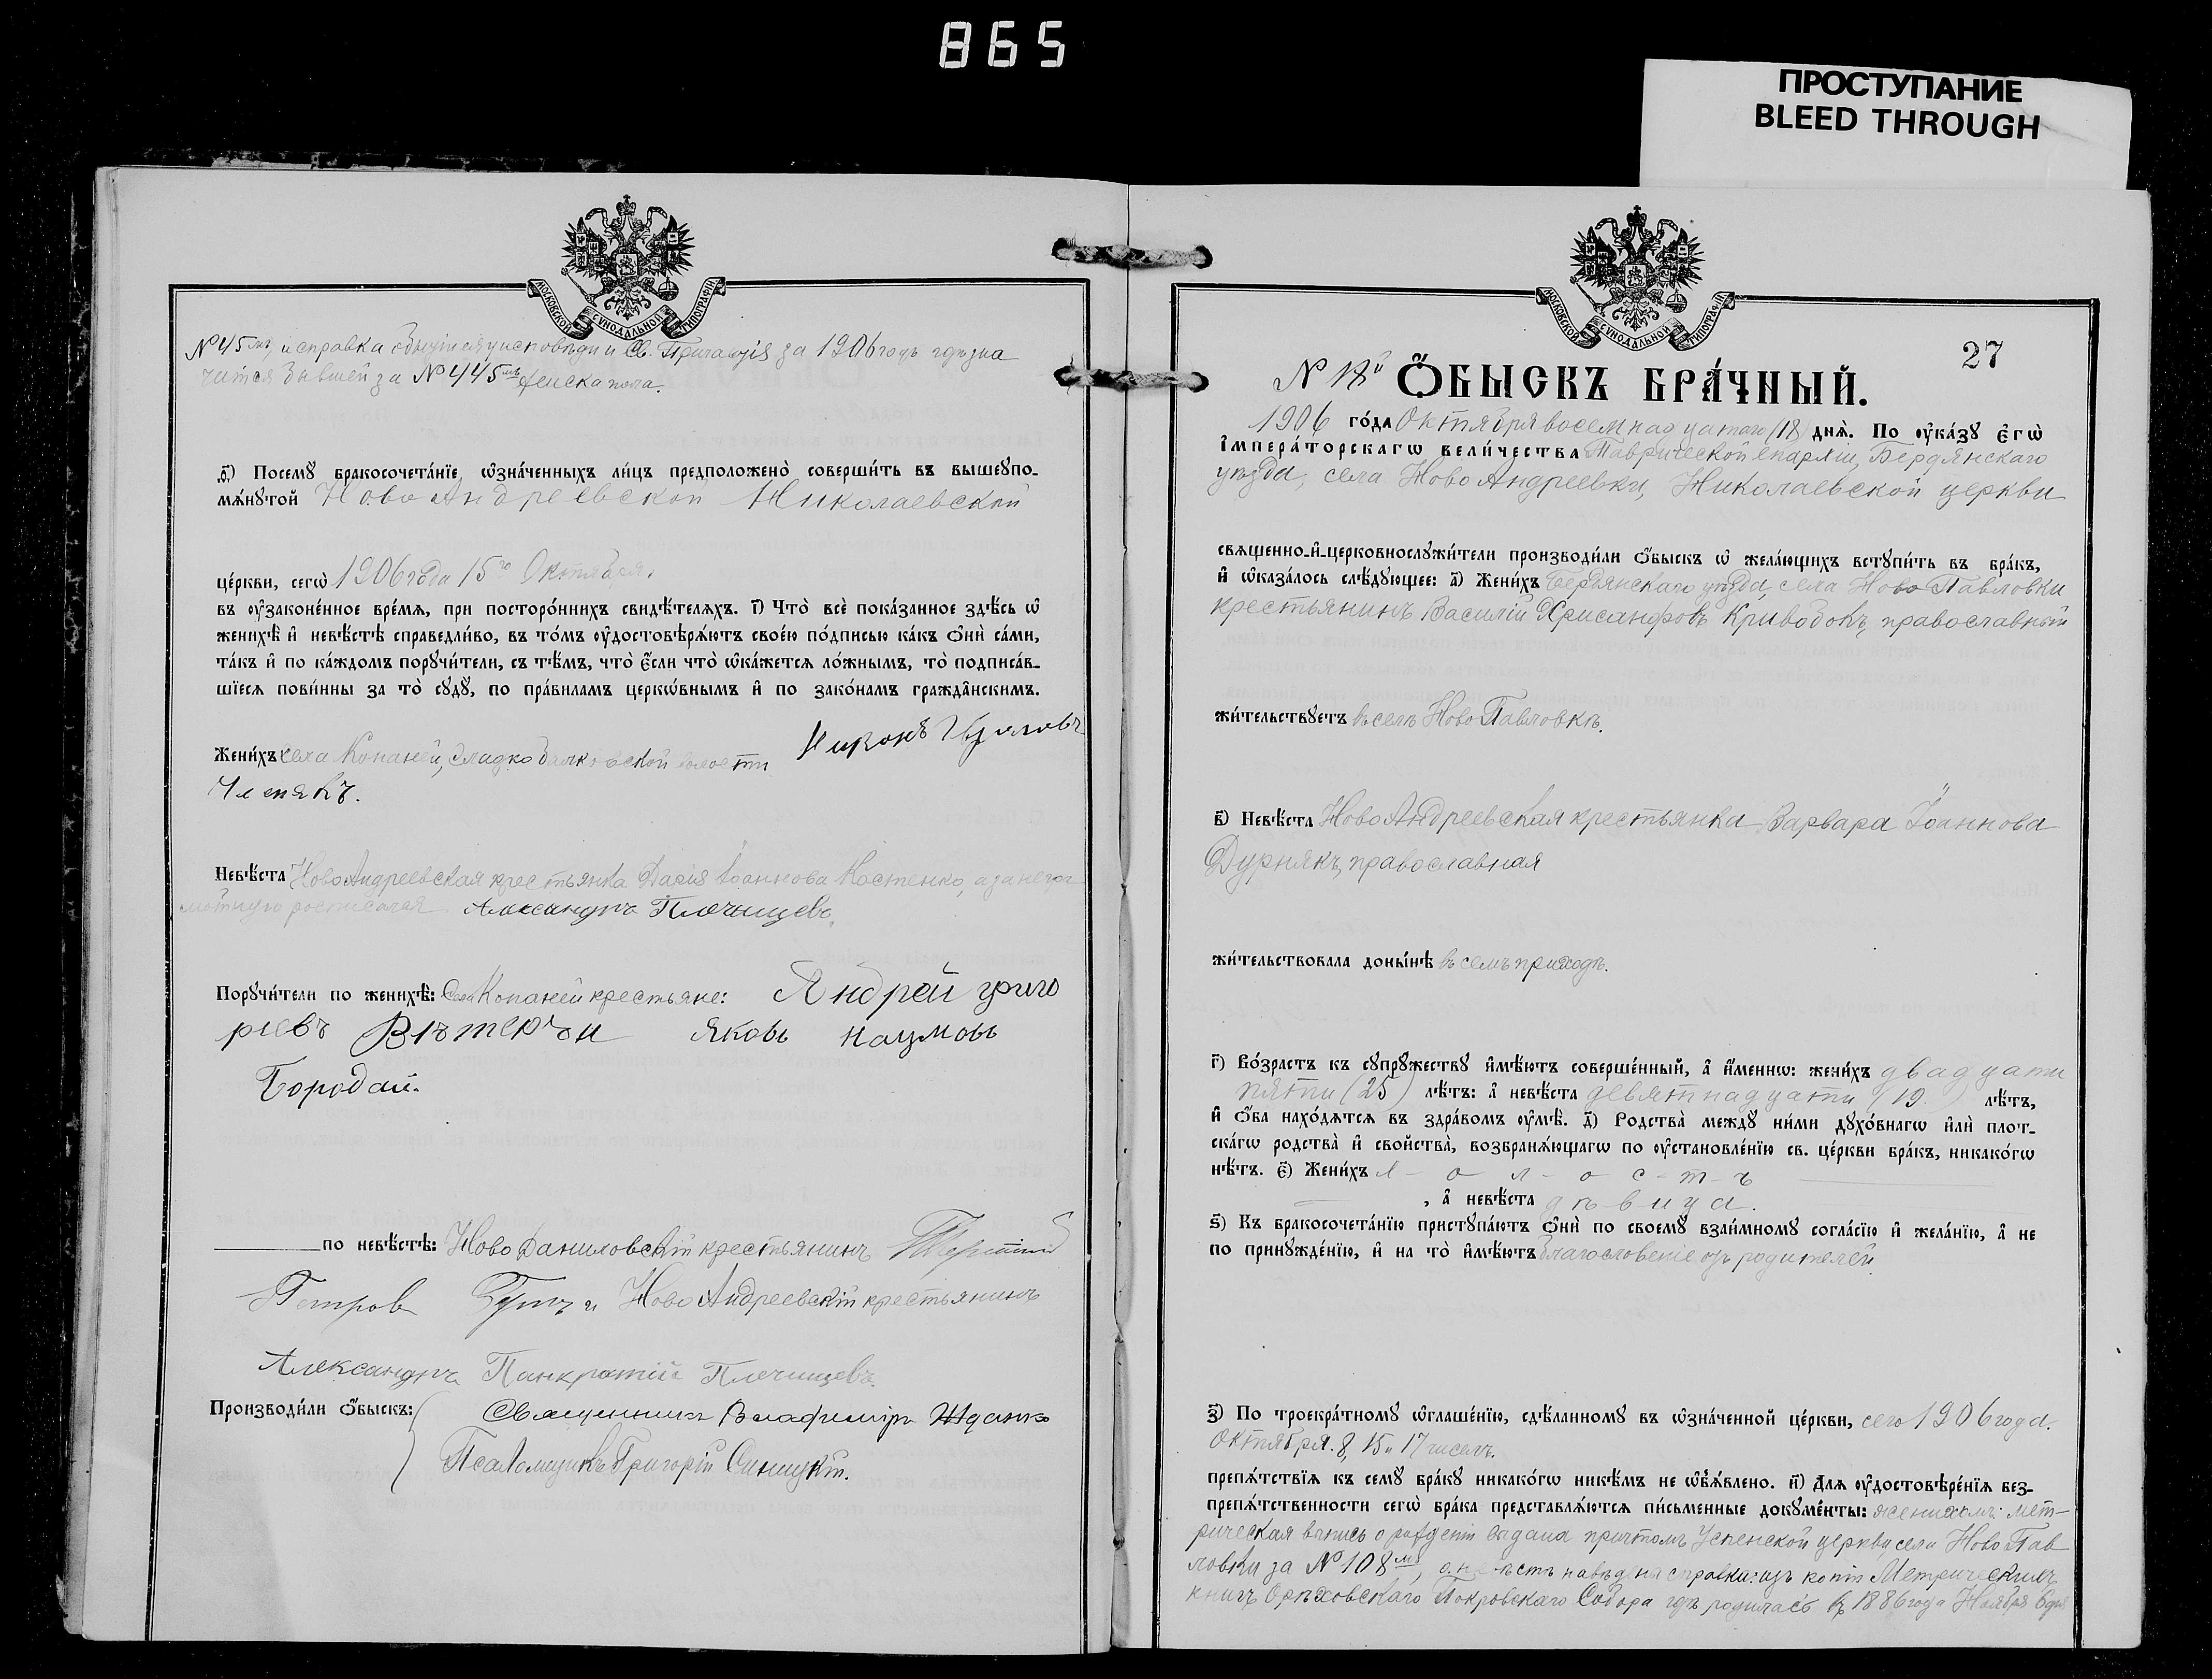 865
ПРОСТУПАНИЕ
BLEED THROUGH
МОСКОВСКОЙ СѴНОДАЛЬНОЙ ТИПОГРАФІИ
№ 45 мъ, и справка о бытіи ея у исповѣди и Св. Причастія за 1906 годъ гдѣ зна
чится бывшей за № 445 мъ женска пола.
д҃) Посемꙋ бракосочета́нїе ѡ҆зна́ченныхъ ли́цъ предположено̀ соверши́ть въ вышеꙋпо-
мѧ́нꙋтой Ново Андреевской Николаевской
це́ркви, сегѡ̀ 1906 года 15го Октября.
въ оу҆законе́нное вре́мѧ, при посторо́ннихъ свидѣ́телѧхъ. і҃) Что̀ всѐ пока́занное здѣ́сь ѡ҆
женихѣ̀ и҆ невѣ́стѣ справедли́во, въ то́мъ оу҆достовѣрѧ́ютъ свое́ю по́дписью ка́къ ѻ҆нѝ са́ми,
та́къ и҆ по ка́ждомъ порꙋчи́тели, съ тѣ́мъ, что̀ є҆́сли что̀ ѡ҆ка́жетсѧ ло́жнымъ, то̀ подписа́в-
шїесѧ пови́нны за то̀ сꙋдꙋ̀, по пра́виламъ церкѡ́внымъ и҆ по зако́намъ гражда̑нскимъ.
Жени́хъ села Копаней, Сладко Балковской волости Никонъ
Невѣ́ста Ново Андреевская крестьянка Дарія Іоаннова Костенко, а за негра
мотную росписался Александръ Плечищевъ.
Порꙋчи́тели по женихѣ̀: Села Копаней крестьяне: Андрей Григо
рьевъ Яковъ Наумовъ
Бородай.
по невѣ́стѣ: Ново Даниловскій крестьянинъ Терентій
Петров Гутъ и Ново Андреевскій крестьянинъ
Александръ Панкратій Плечищевъ.
Производи́ли ѻ҆́быскъ: Священникъ Владиміръ Жданко
Псаломщикъ Григорій Синицкій.
МОСКОВСКОЙ СѴНОДАЛЬНОЙ ТИПОГРАФІИ
27
№ 18й Ѻ҆́БЫСКЪ БРА́ЧНЫЙ.
1906 го́да Октября восемнадцатаго (18) днѧ̀. По оу҆ка́зꙋ є҆гѡ̀
і҆мпера́торскагѡ вели́чества Таврической епархіи, Бердянскаго
уѣзда, села Ново Андреевки, Николаевской церкви
свѧщенно-и҆-церковнослꙋжи́тели производи́ли ѻ҆́быскъ ѡ҆ жела́ющихъ встꙋпи́ть въ бра́къ,
и҆ ѡ҆каза́лось слѣ́дꙋющее: а҃) Жени́хъ Бердянскаго уѣзда, села Ново Павловки
крестьянинъ Василій Хрисанфовъ Кривобокъ, православный
жи́тельствꙋетъ въ селѣ Ново Павловкѣ.
в҃) Невѣ́ста Ново Андреевская крестьянка Варвара Іоаннова
Дурнякъ, православная
жи́тельствовала доны́нѣ въ семъ приходѣ.
г҃) Во́зрастъ къ сꙋпрꙋ́жествꙋ и҆мѣ́ютъ соверше́нный, а҆ и҆́меннѡ: жени́хъ двадцати
пяти (25) лѣ́тъ: а҆ невѣ́ста девятнадцати (19) лѣ́тъ,
и҆ ѻ҆́ба нахо́дѧтсѧ въ здра́вомъ оу҆мѣ̀. д҃) Родства̀ междꙋ̀ ни́ми дꙋхо́внагѡ и҆лѝ плот-
ска́гѡ родства̀ и҆ свойства̀, возбранѧ́ющагѡ по оу҆становле́нїю св. це́ркви бра́къ, никако́гѡ
нѣ́тъ. є҃) Жени́хъ х - о - л - о - с - т - ъ
, а҆ невѣ́ста дѣвица.
ѕ҃) Къ бракосочета́нїю пристꙋпа́ютъ ѻ҆нѝ по своемꙋ̀ взаи́мномꙋ согла́сїю и҆ жела́нїю, а҆ не
по принꙋжде́нїю, и҆ на то̀ и҆мѣ́ютъ благословеніе отъ родителей
з҃) По троекра́тномꙋ ѡ҆глаше́нїю, сдѣ́ланномꙋ въ ѡ҆зна́ченной це́ркви, сего 1906 года.
Октября 8, 15 и 17 чиселъ.
препѧ́тствїѧ къ семꙋ̀ бра́кꙋ никако́гѡ никѣ́мъ не ѡ҆б̾ѧ́влено. и҃) Для оу҆достовѣре́нїѧ без-
препѧ́тственности сегѡ̀ бра́ка представлѧ́ютсѧ пи́сьменные докꙋме́нты: женихомъ: мет-
рическая выпись о рожденіи выдана причтомъ Успенской церкви, села Ново Пав
ловки за № 108 мъ, о невѣстѣ наведена справка: изъ копіи Метрическихъ
книгъ Орѣховскаго Покровскаго Собора гдѣ родилась въ 1886 года Ноября 6 дня